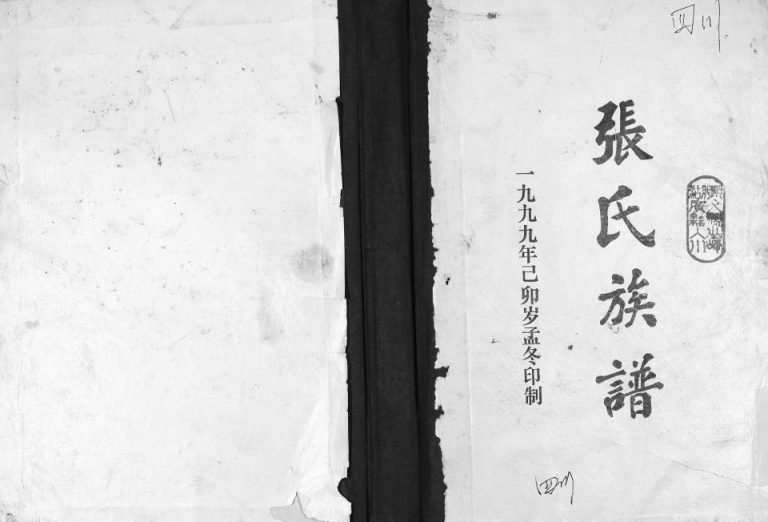 四川
張氏族譜
一九九九年己卯岁孟冬印制
四川